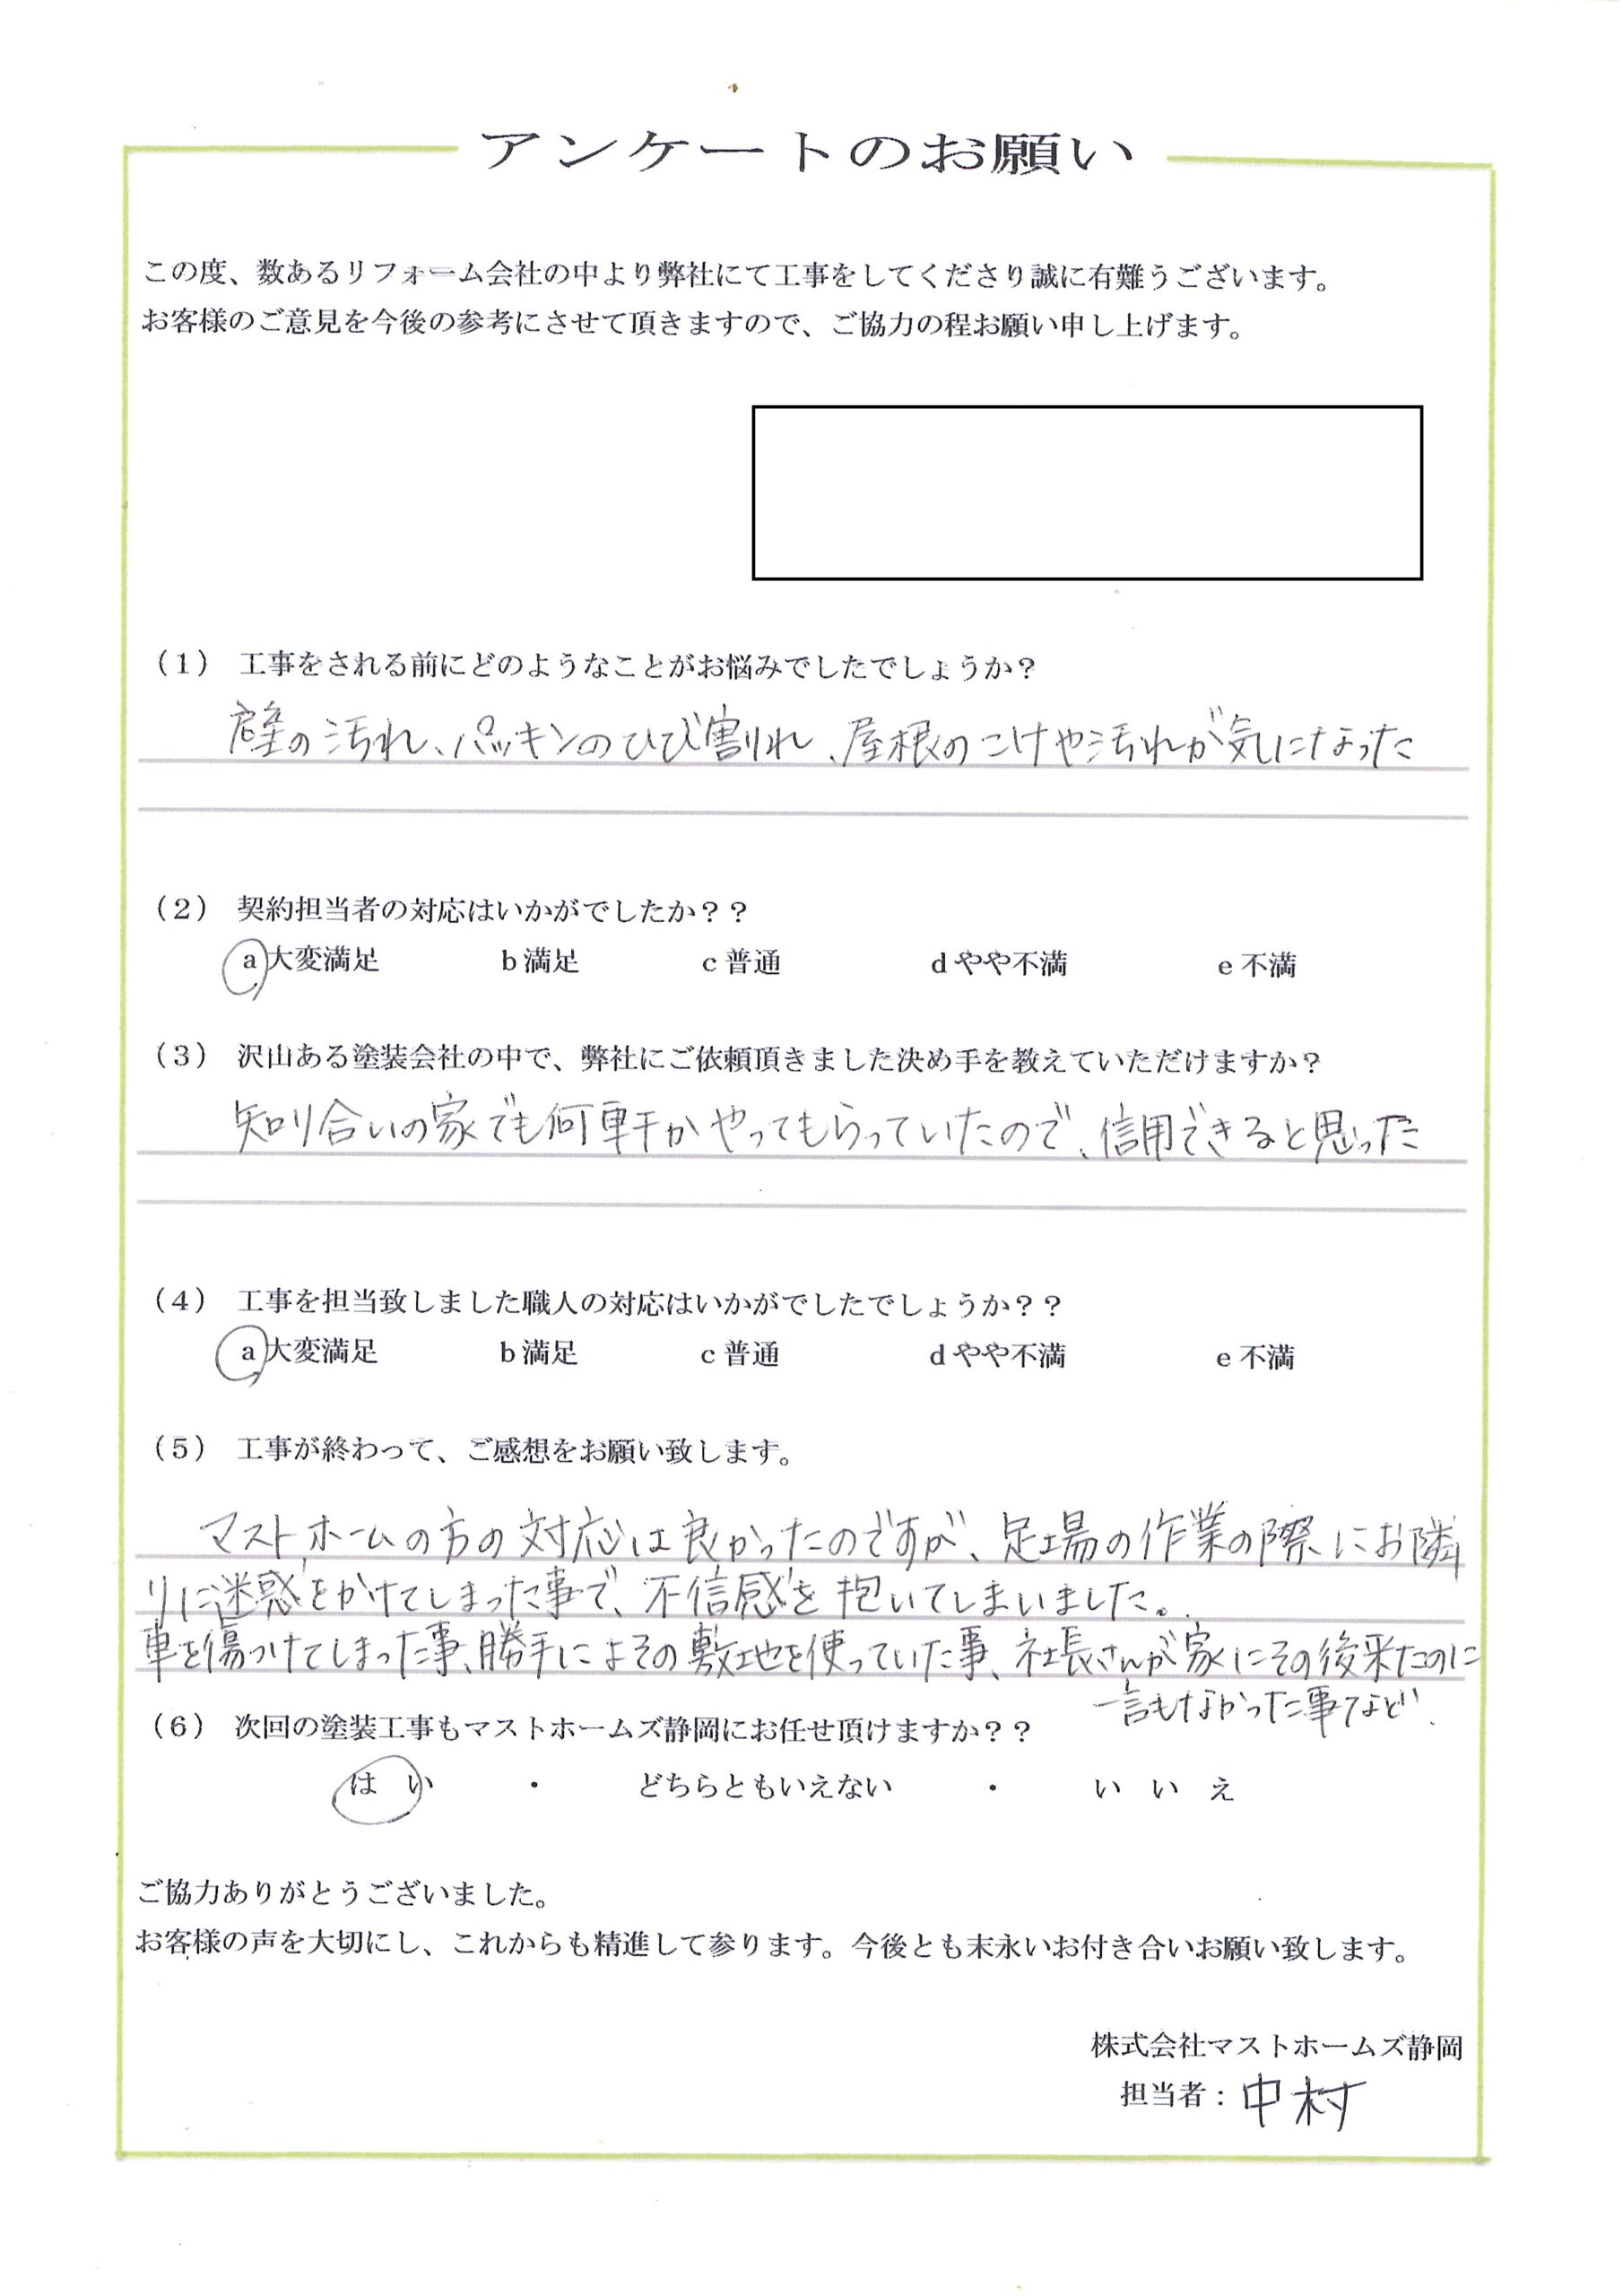 アンケートのお願い
この度、数あるリフォーム会社の中より弊社にて工事をしてくださり誠に有難うございます。
お客様のご意見を今後の参考にさせて頂きますので、ご協力の程お願い申し上げます。
（1） 工事をされる前にどのようなことがお悩みでしたでしょうか？
壁の汚れ、パッキンのひび割れ、屋根のこけや汚れが気になった
（2） 契約担当者の対応はいかがでしたか？？
a 大変満足 b 満足 c 普通 d やや不満 e 不満
（3） 沢山ある塗装会社の中で、弊社にご依頼頂きました決め手を教えていただけますか？
知り合いの家でも何軒かやってもらっていたので、信用できると思った
（4） 工事を担当致しました職人の対応はいかがでしたでしょうか？？
a 大変満足 b 満足 c 普通 d やや不満 e 不満
（5） 工事が終わって、ご感想をお願い致します。
マストホームの方の対応は良かったのですが、足場の作業の際にお隣
りに迷惑をかけてしまった事で、不信感を抱いてしまいました。
車を傷つけてしまった事、勝手によその敷地を使っていた事、社長さんが家にその後来たのに
一言もなかった事など．
（6） 次回の塗装工事もマストホームズ静岡にお任せ頂けますか？？
はい ・ どちらともいえない ・ いいえ
ご協力ありがとうございました。
お客様の声を大切にし、これからも精進して参ります。今後とも末永いお付き合いお願い致します。
株式会社マストホームズ静岡
担当者：中村